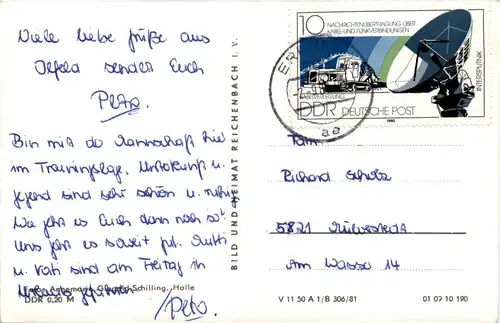 Viele liebe Grüße aus
Ilfeld sendet Euch
Peter
Bin mit der Mannschaft hier
im Trainingslager. Unterkunft u.
Gegend sind sehr schön u. ruhig.
Wie geht es Euch denn noch so?
Uns geht es soweit gut. Mutti
u. Vati sind am Freitag in
Urlaub gefahren.
Peter
Foto: Annemarie Schilling, Halle
DDR 0,20 M
BILD UND HEIMAT REICHENBACH I. V.
10 NACHRICHTENÜBERTRAGUNG ÜBER
KABEL- UND FUNKVERBINDUNGEN
KABELVERLEGUNG
INTERSPUTNIK
DDR DEUTSCHE POST
1980
ae
Fam.
Richard Scholz
5821
Am Wasser 14
V 11 50 A 1/B 306/81
01 07 10 190